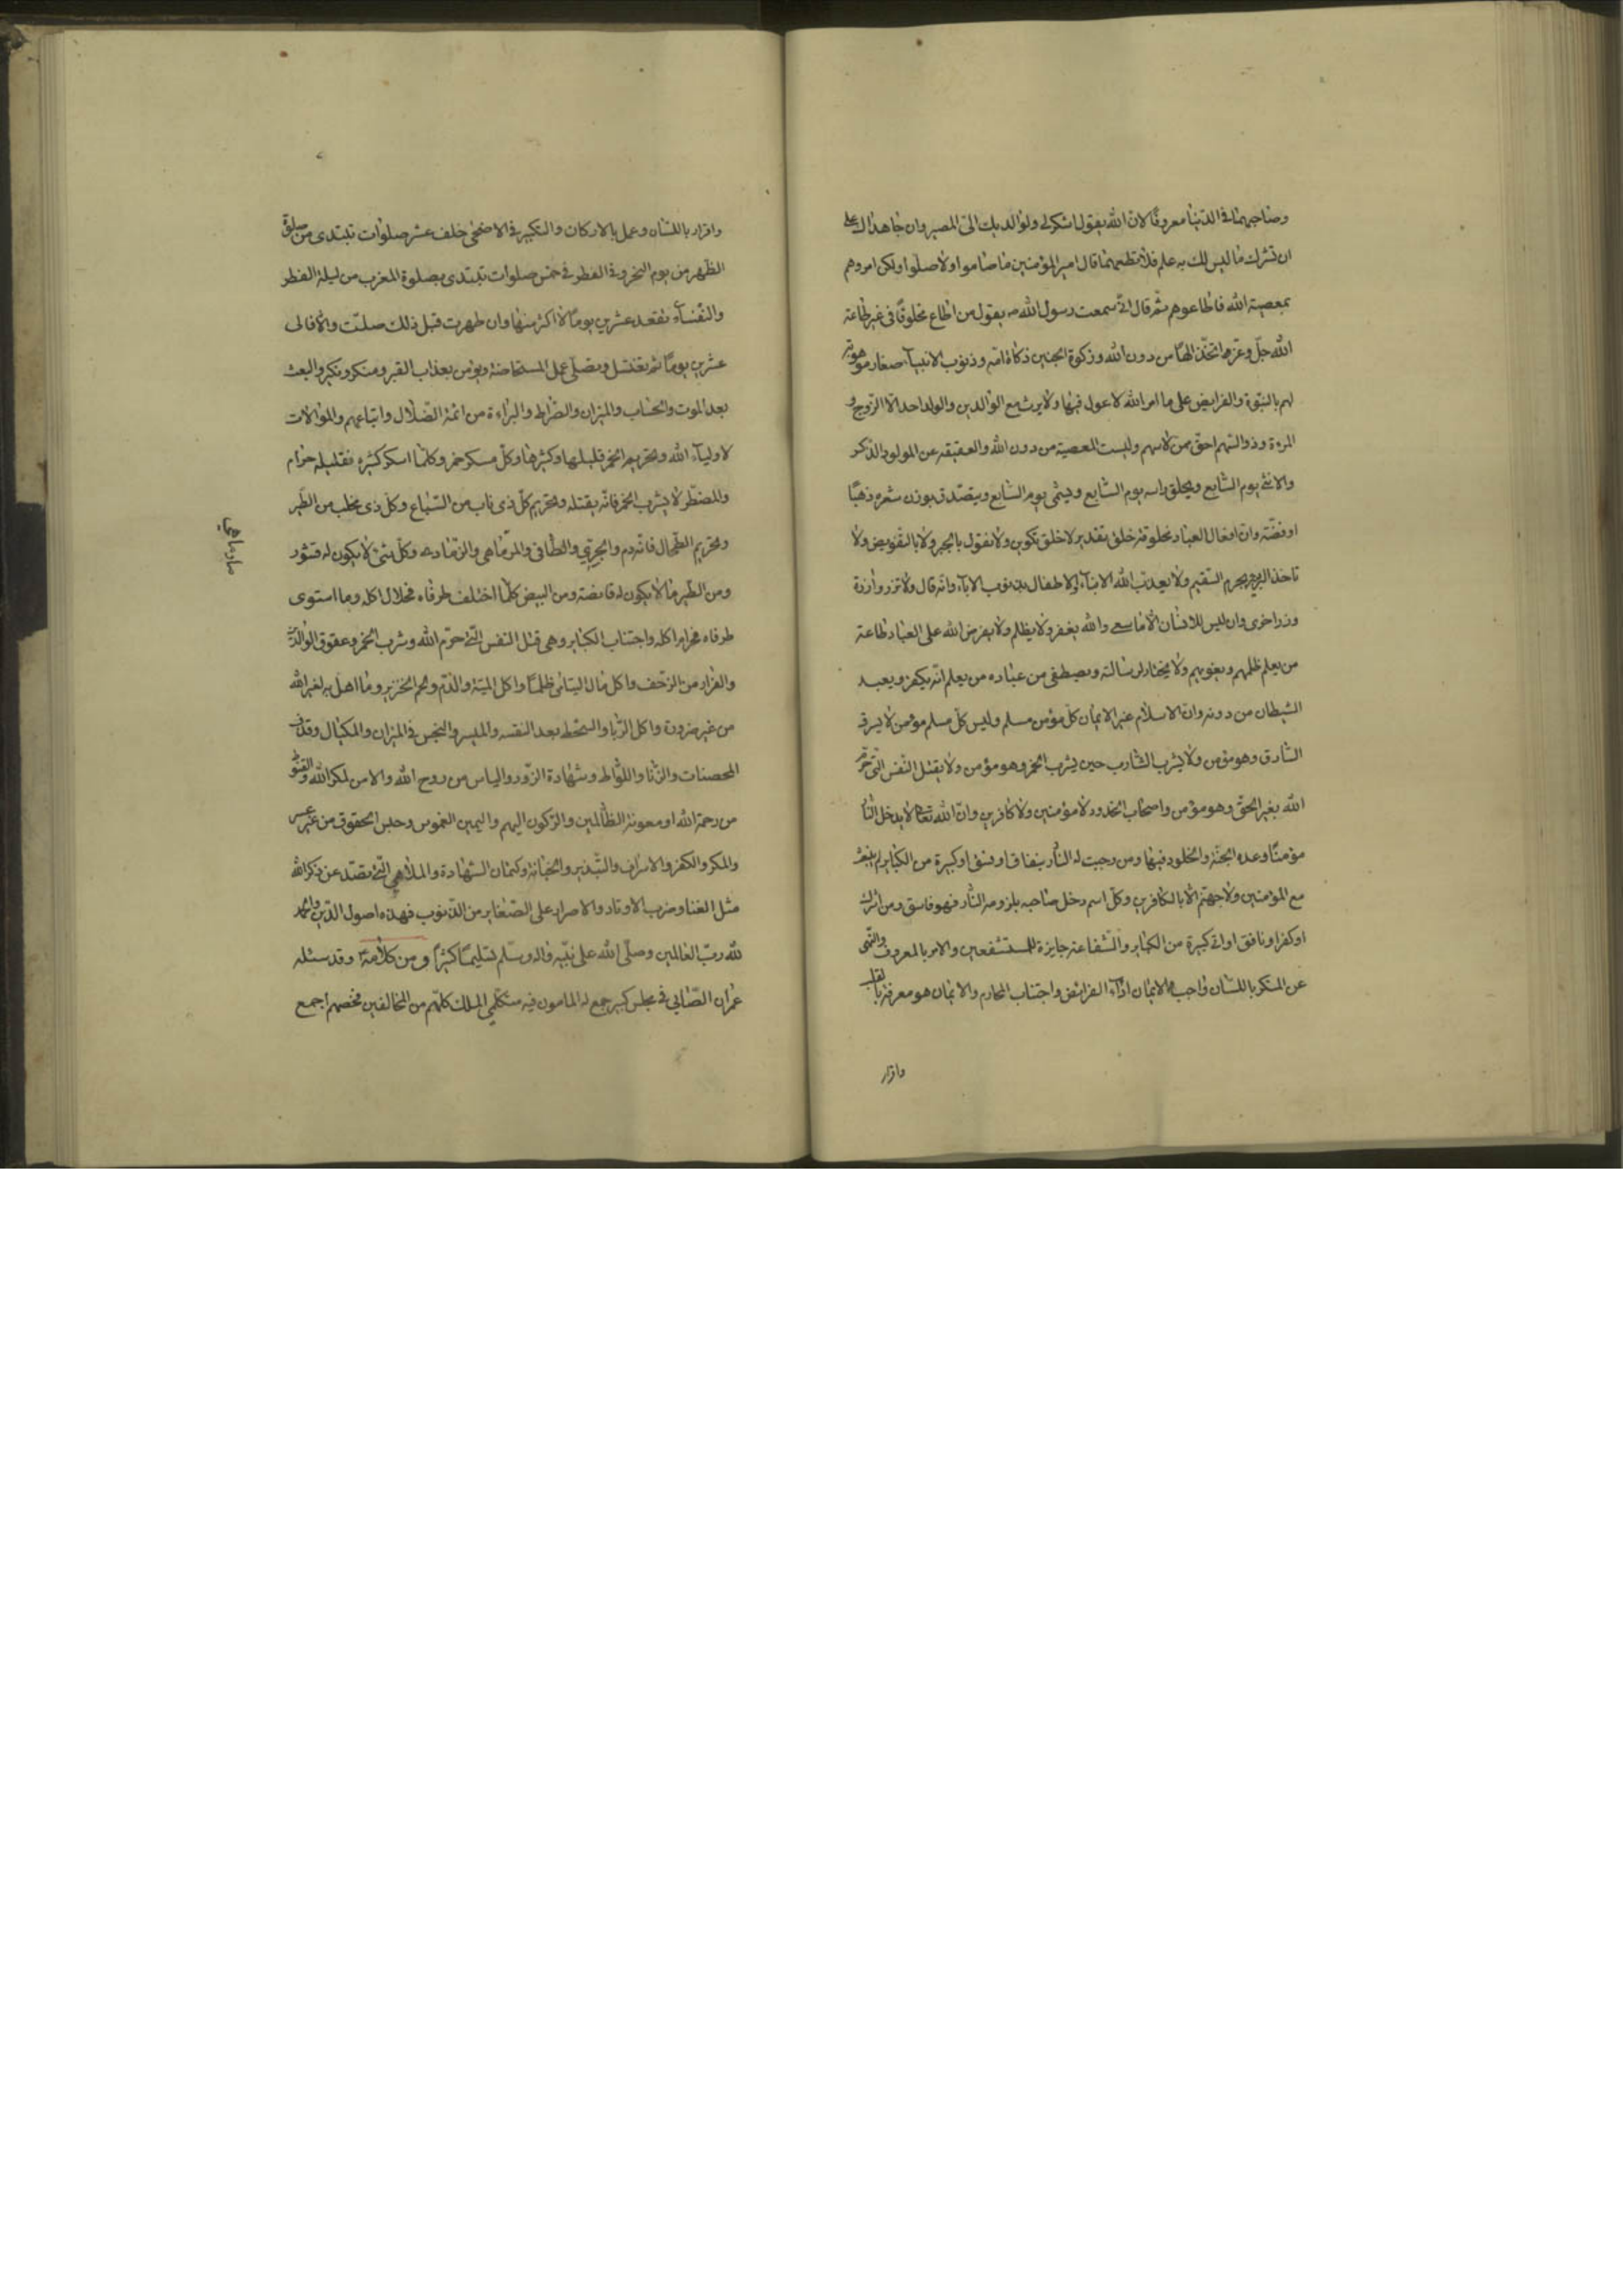 وصاحبهما فى الدنيا معروفا لان الله يقول اشكر لى ولوالديك الىّ المصير وان جاهداك على
ان تشرك ما ليس لك به علم فلا تطعهما قال امير المؤمنين ما صاموا ولا صلّوا ولكن امروهم
بمعصية الله فاطاعوهم ثمّ قال انّى سمعت رسول الله ص يقول من اطاع مخلوقًا فى غير طاعة
الله جلّ وعزّ واتخذ الهًا من دون الله وزكوة الجنين ذكاة امّه وذنوب الانبياء صغار موهوبة
لهم بالنبوّة والفرايض على ما امر الله لا عول فيها ولا يرث مع الوالدين والولد احد الّا الزوج و
المرءة وذو السّهم احقّ ممن لا سهم وليست العصبة من دون الله والعقيقة عن المولود الذكر
والانثى يوم السّابع ويحلق راسه يوم السّابع ويسمّى يوم السّابع ويتصدّق بوزن شعره ذهبًا
او فضّة وانّ افعال العباد مخلوقة خلق تقدير لا خلق تكوين ولا نقول بالجبر ولا بالتفويض ولا
تاخذ البرىء بجرم السّقيم ولا يعذّب الله الابناء والاطفال بذنوب الاباء وانّه قال ولا تزر وازرة
وزر اخرى وان ليس للانسان الّا ما سعى والله يغفر ولا يظلم ولا يفرض الله على العباد طاعة
من يعلم ظلمهم ويغويهم ولا يختار لرسالته ويصطفى من عباده من يعلم انّه يكفر ويعبد
الشيطان من دونه وانّ الاسلام غير الايمان كلّ مؤمن مسلم وليس كلّ مسلم مؤمن لا يسرق
السّارق وهو مؤمن ولا يشرب الشّارب حين يشرب الخمر وهو مؤمن ولا يقتل النّفس الّتى حرّم
الله بغير الحقّ وهو مؤمن واصحاب الحدود لا مؤمنين ولا كافرين وانّ الله تعالى لا يدخل النّار
مؤمنًا وعده الجنّة والخلود فيها ومن وجبت له النّار بنفاق او فسق او كبيرة من الكبائر لم يبعث
مع المؤمنين ولا جهنّم الّا بالكافرين وكلّ اسم دخل صاحبه بلزومه النّار فهو فاسق ومن اشرك
او كفر او نافق او اتى كبيرة من الكبائر والشّفاعة جايزة للمستشفعين والامر بالمعروف والنّهى
عن المنكر باللسّان واجب والايمان اداء الفرائض واجتناب المحارم والايمان هو معرفة بالقلب
واقرار
واقرار باللسّان وعمل بالاركان والتكبير فى الاضحى خلف عشر صلوات تبتدى من صلوة
الظّهر من يوم النحر وفى الفطر فى خمس صلوات تبتدى بصلوة المغرب من ليلة الفطر
والنّفساء تقعد عشرين يومًا لا اكثر منها وان طهرت قبل ذلك صلّت والّا فالى
عشرين يومًا ثم تغتسل وتصلّى عمل المستحاضة ويؤمن بعذاب القبر ومنكر ونكير والبعث
بعد الموت والحساب والميزان والصّراط والبراءة من ائمة الضّلال واتباعهم والموالات
لاولياء الله وتحريم الخمر قليلها وكثيرها وكلّ مسكر خمر وكلّما اسكر كثيره فقليله حرام
والمضطّر لا يشرب الخمر فانّه يقتله وتحريم كلّ ذى ناب من السّباع وكلّ ذى مخلب من الطّير
وتحريم الطّحال فانّه دم والجرّى والطّافى والمارماهى والزّمار وكلّ شىء لا يكون له قشور
ومن الطّير ما لا يكون له قانصة ومن البيض كلّما اختلف طرفاه فحلال اكله وما استوى
طرفاه فحرام اكله واجتناب الكبائر وهى قتل النفس الّتى حرّم الله وشرب الخمر وعقوق الوالدين
والفرار من الزّحف واكل مال اليتامى ظلمًا واكل الميتة والدّم ولحم الخنزير وما اهل به لغير الله
من غير ضرورة واكل الرّبا والسّحت بعد البيّنة والميسر والبخس فى الميزان والمكيال وقذف
المحصنات والزّنا واللّواط وشهادة الزّور والياس من روح الله والامن لمكر الله والقنوط
من رحمة الله او معونة الظّالمين والرّكون اليهم واليمين الغموس وحبس الحقوق من غير عسر
والمكر والكفر والاسراف والتّبذير والخيانة وكتمان الشّهادة والملاهى الّتى تصدّ عن ذكر الله
مثل الغنا وضرب الاوتار والاصرار على الصّغاير من الذّنوب فهذه اصول الدّين والحمد
لله ربّ العالمين وصلّى الله على نبيّه واله وسلّم تسليمًا كثيرًا ومن كلامه ع وقد سئله
عمران الصّابى فى مجلس كبير جمع له المامون فيه متكلّمى الملل كلهّم من المخالفين فخصهم اجمع
مارماهى